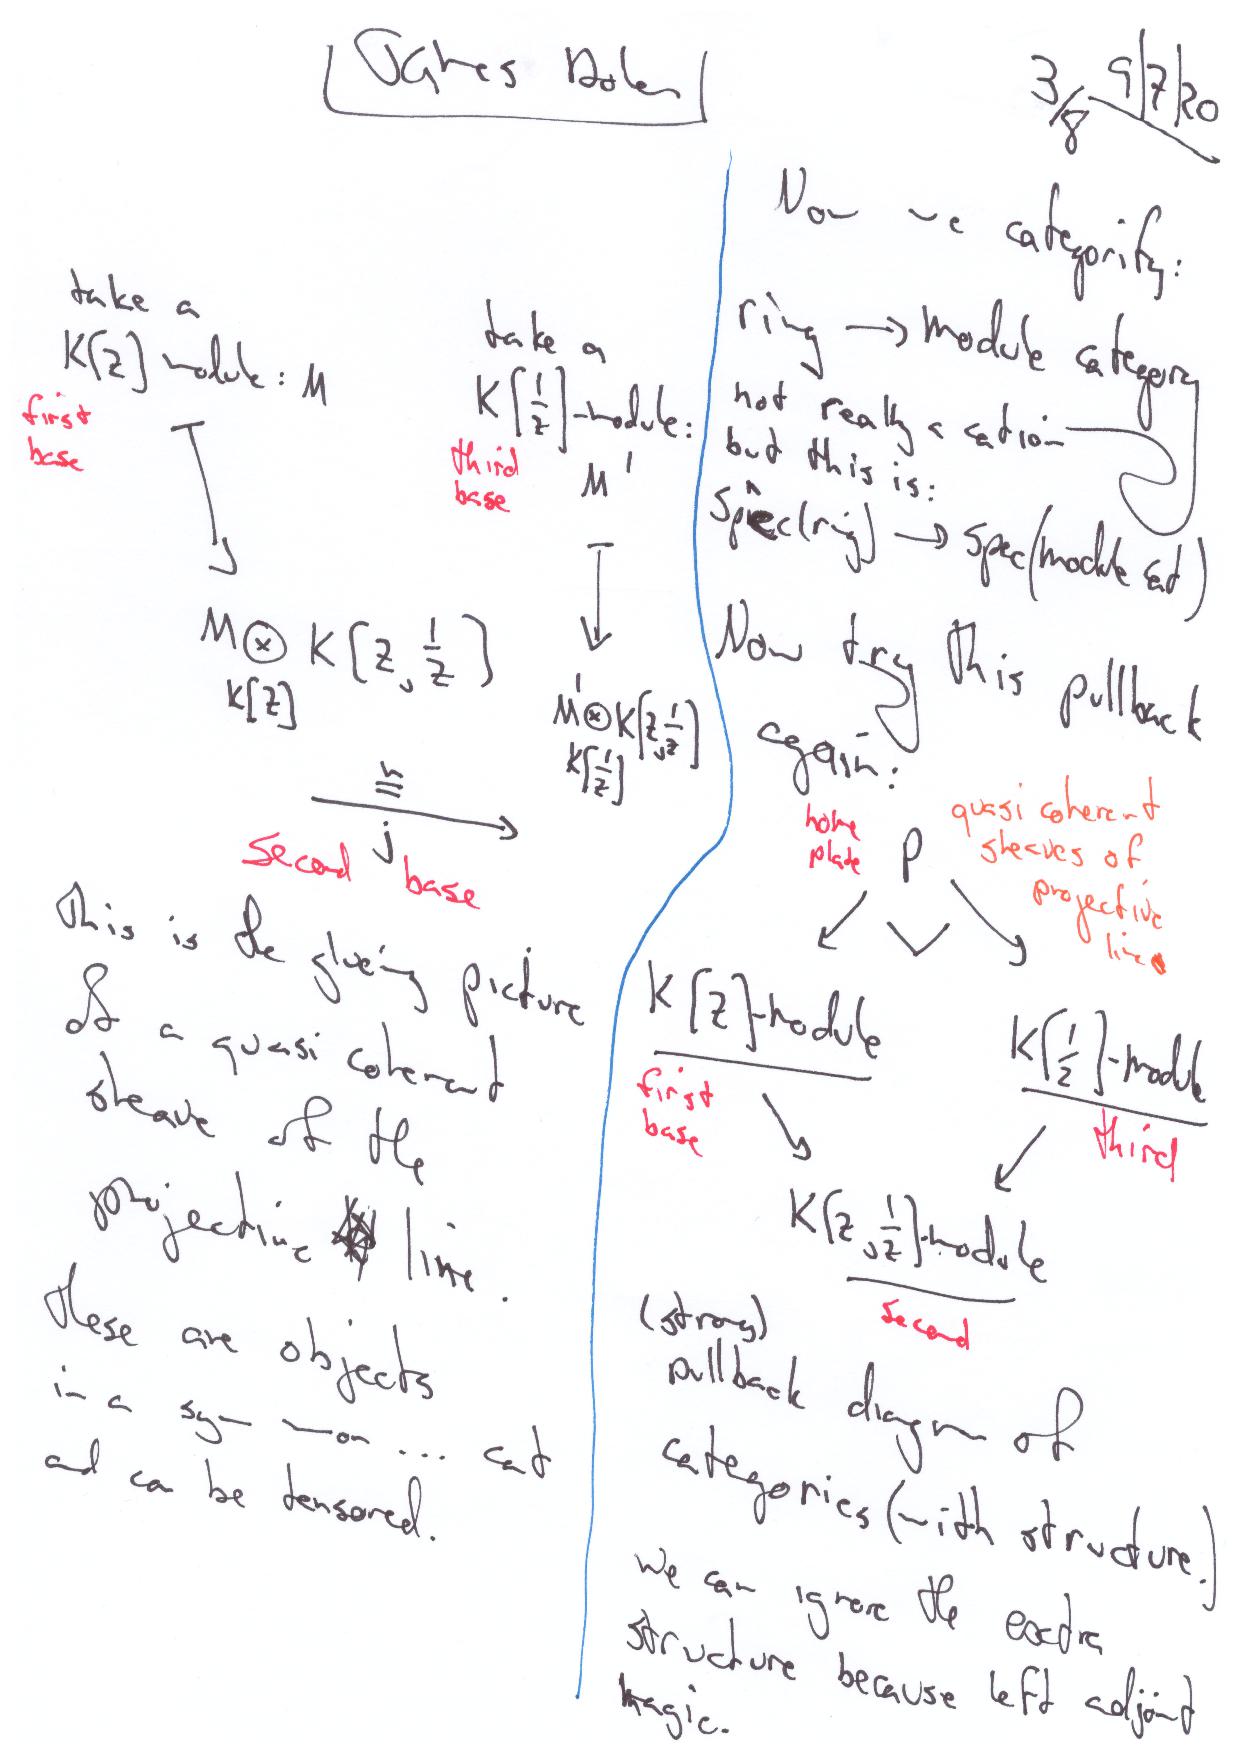 James Dolan
3/8 9/7/20
take a
K[z] module: M
first
base
take a
K[1/z]-module:
third
base
M'
M ⊗ K[z, 1/z]
K[z]
M' ⊗ K[z, 1/z]
K[1/z]
≅
j
second base
This is the glueing picture
of a quasi coherent
sheave of the
projective line.
these are objects
in a sym mon ... cat
and can be tensored.
Now we categorify:
ring → module category
not really a cation
but this is:
spec(ring) → spec(module cat)
Now try this pullback
again:
home
plate
P
quasi coherent
sheaves of
projective
line
K[z]-module
first
base
K[1/z]-module
third
K[z, 1/z]-module
second
(strong)
pullback diagram of
categories (with structure.)
We can ignore the extra
structure because left adjoint
magic.